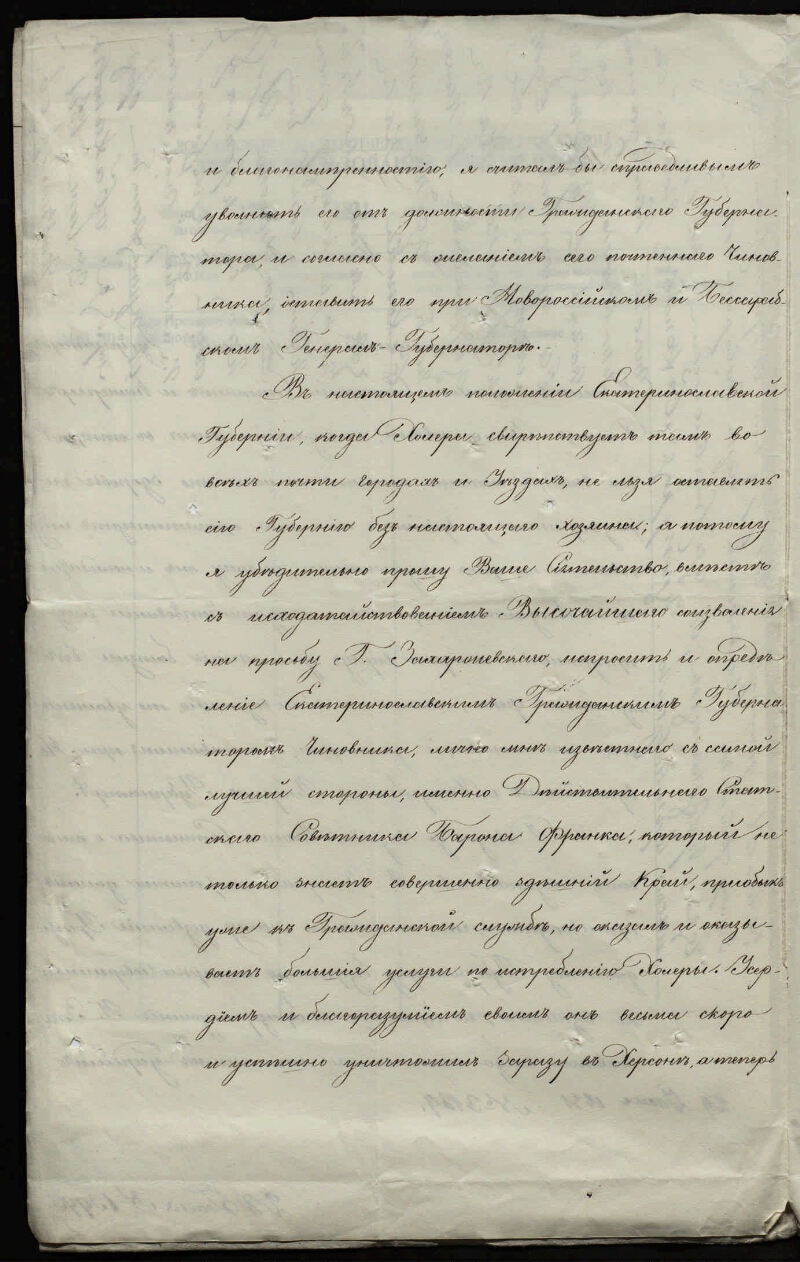 и благонамѣренностію, я считалъ бы справедливымъ
уволить его отъ должности Гражданскаго Губерна-
тора, и согласно съ желаніемъ сего почтеннаго Чинов-
ника, оставить его при Новороссійскомъ и Бессараб-
скомъ Генералъ-Губернаторѣ.-
Въ настоящемъ положеніи Екатеринославской
Губерніи, когда Холера свирѣпствуетъ тамъ во
всѣхъ почти городахъ и Уѣздахъ, не льзя оставлять
сію Губернію безъ настоящаго хозяина; а потому
я убѣдительно прошу Ваше Сіятельство, вмѣстѣ
съ исходатайствованіемъ Высочайшаго соизволенія
на просьбу Г. Захаржевскаго, испросить и опредѣ-
леніе Екатеринославскимъ Гражданскимъ Губерна
торомъ Чиновника, лично мнѣ извѣстнаго съ самой
лучшей стороны, именно Дѣйствительнаго Стат-
скаго Совѣтника Барона Франка, который не
только знаетъ совершенно здѣшній Край, привыкъ
уже къ Гражданской службѣ, но оказалъ и оказы-
ваетъ большія услуги по истребленію Холеры. Усер-
діемъ и благоразуміемъ своимъ онъ весьма скоро
и успѣшно уничтожилъ заразу въ Херсонѣ, а теперь